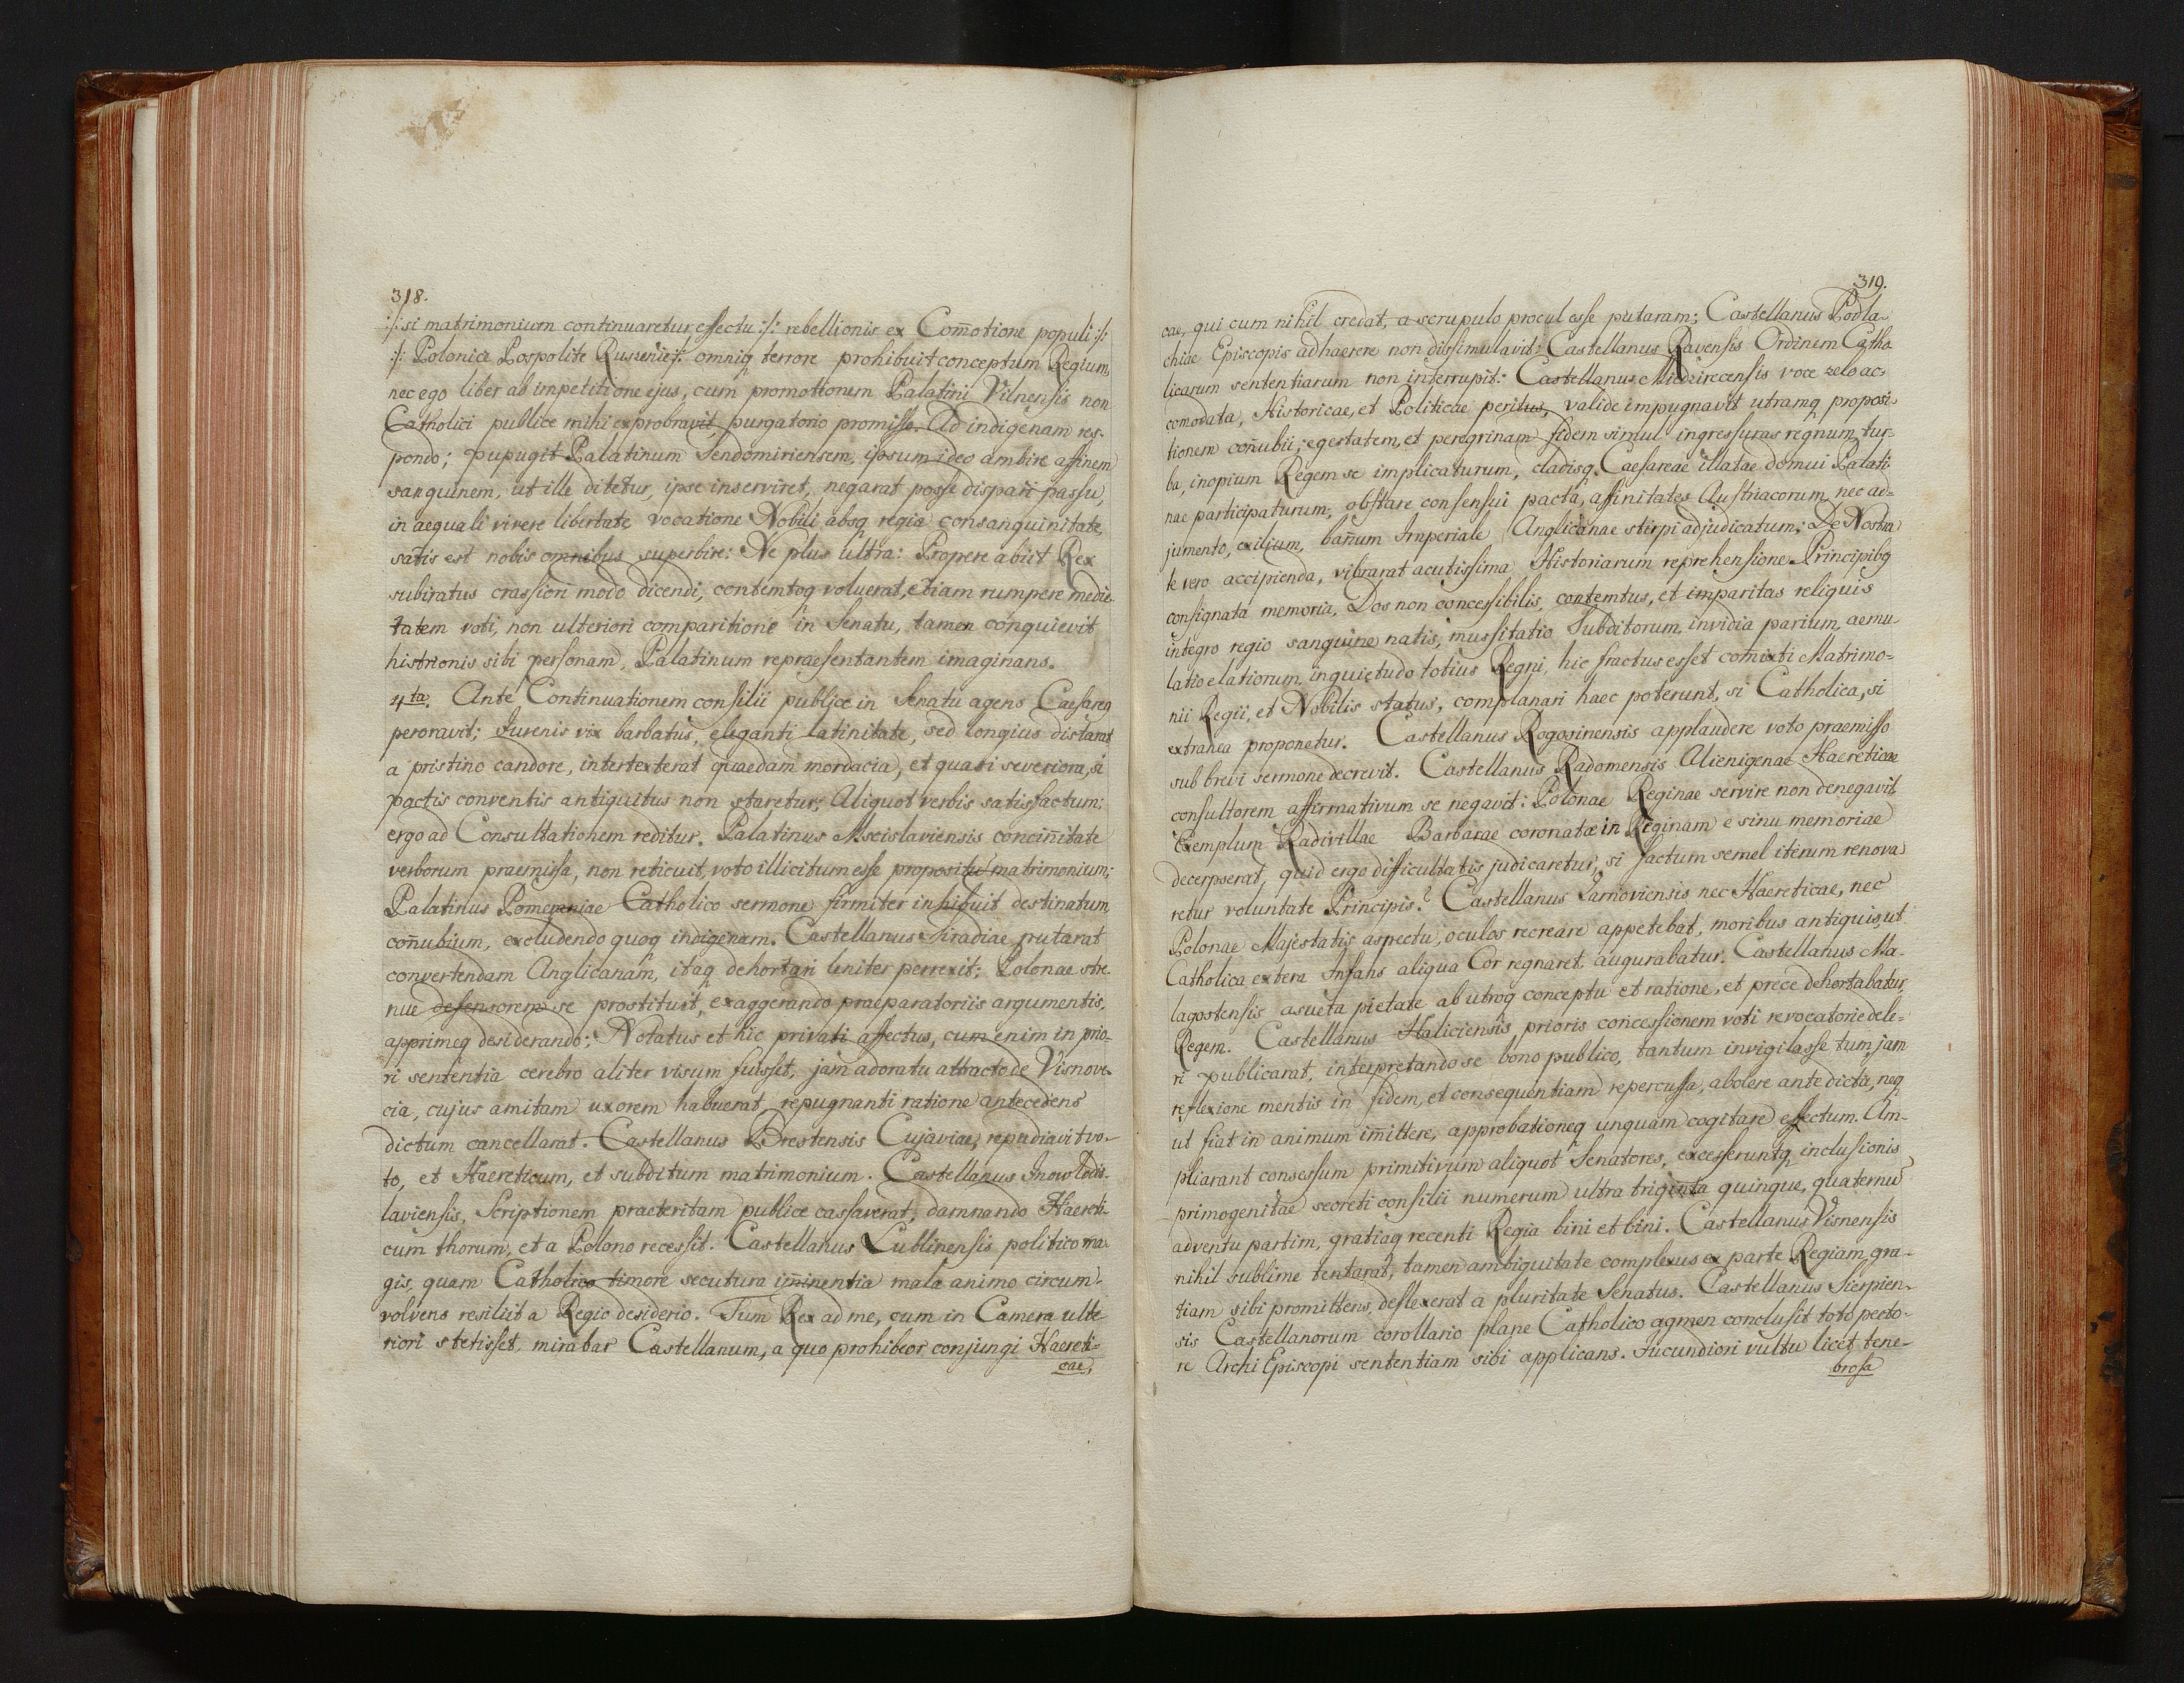 318.
:/: si matrimonium continuaretur effectu :/: rebellionis ex Com̄otione populi :/:
:/: Polonice Pospolite Ruszenie :/: omniq terrore prohibuit conceptum Regium,
nec ego liber ab impetitione ejus, cum promotionem Palatini Vilnensis non
Catholici publice mihi exprobravit, purgatorio promisso. Ad indigenam res-
pondo; pupugit Palatinum Sendomiriensem, ipsum ideo ambire affinem
sanguinem, ut ille ditetur, ipse inserviret, negarat posse dispari passu,
in aequali vivere libertate vocatione Nobili absq regia consanguinitate,
satis est nobis omnibus superbire: Ne plus ultra: Propere abiit Rex
subiratus crassiori modo dicendi, contemtoq voluerat, etiam rumpere medie-
tatem voti, non ulteriori comparitione in Senatu, tamen conquievit
histrionis sibi personam, Palatinum repraesentantem imaginans.
4ta. Ante Continuationem consilii publice in Senatu agens Caesarea
peroravit; Juvenis vix barbatus, eleganti latinitate, sed longius distarat
a pristino candore, intertexterat quaedam mordacia, et quasi severiora, si
pactis conventis antiquitus non staretur; Aliquot verbis satisfactum:
ergo ad Consultationem reditur. Palatinus Mscislaviensis concin̄itate
verborum praemissa, non reticuit, voto illicitum esse propositū matrimonium;
Palatinus Pomeraniae Catholico sermone firmiter inhibuit destinatum
con̄ubium, excludendo quoq indigenam. Castellanus Siradiae putarat
convertendam Anglicanam, itaq dehortari leniter perrexit; Polonae stre-
nue defensorem se prostituit, exaggerando praeparatoriis argumentis,
apprimeq desiderando; Notatus et hic privati affectus, cum enim in prio-
ri sententia cerebro aliter visum fuisset, jam adoratu attracto de Visnove-
cia, cujus amitam uxorem habuerat, repugnanti ratione antecedens
dictum cancellarat. Castellanus Brestensis Cujaviae, repudiavit vo-
to, et Haereticum, et subditum matrimonium. Castellanus Inowlodis-
laviensis, Scriptionem praeteritam publice cassaverat, damnando Haereti-
cum thorum, et a Polono recessit. Castellanus Lublinensis politico ma-
gis, quam Catholico timore secutura im̄inentia mala animo circum-
volvens resiliit a Regio desiderio. Tum Rex ad me, cum in Camera ulte-
riori stetisset, mirabar Castellanum, a quo prohibeor conjungi Haereti-
cae,
319.
cae, qui cum nihil credat, a scrupulo procul esse putaram; Castellanus Podla-
chiae Episcopis adhaerere non dissimulavit: Castellanus Ravensis Ordinem Catho-
licarum sententiarum non interrupit: Castellanus Miedzirecensis voce zelo ac-
comodata, Historicae, et Politicae peritus, valide impugnavit utramq proposi-
tionem con̄ubii; egestatem, et peregrinam fidem simul ingressuras regnum, tur-
ba, inopium Regem se implicaturum, cladisq Caesareae illatae domui Palati-
nae participaturum; obstare consensui pacta, affinitates Austriacorum, nec ad-
jumento, exilium, ban̄um Imperiale Anglicanae stirpi adjudicatum; De Nostra-
te vero accipienda, vibrarat acutissima Historiarum reprehensione. Principibq
consignata memoria, Dos non concessibilis, contemtus, et imparitas reliquis
integro regio sanguine natis, mussitatio Subditorum, invidia parium, aemu-
latio elationum, inquietudo totius Regni, hic fructus esset com̄ixti Matrimo-
nii Regii, et Nobilis status, complanari haec poterunt, si Catholica, si
extranea proponetur. Castellanus Rogozinensis applaudere voto praemisso
sub brevi sermone decrevit. Castellanus Radomensis Alienigenae Haereticae
consultorem affirmativum se negavit: Polonae Reginae servire non denegavit
Exemplum Radivillae Barbarae coronatae in Reginam e sinu memoriae
decerpserat, quid ergo difficultatis judicaretur, si factum semel iterum renova-
retur voluntate Principis? Castellanus Zarnoviensis nec Haereticae, nec
Polonae Majestatis aspectu, oculos recreare appetebat, moribus antiquis, ut
Catholica extera Infans aliqua Cor regnaret, augurabatur. Castellanus Ma-
lagostensis asueta pietate ab utroq conceptu et ratione, et prece dehortabatur
Regem. Castellanus Haliciensis prioris concessionem voti revocatorie dele-
ri publicarat, interpretando se bono publico, tantum invigilasse tum, jam
reflexione mentis in fidem, et consequentiam repercussa, abolere ante dicta, neq
ut fiat in animum im̄ittere, approbationeq unquam cogitare effectum. Am-
pliarant consessum primitivum aliquot Senatores, excesseruntq inclusionis
primogenitae secreti consilii numerum ultra triginta quinque, quaternū
adventu partim, gratiaq recenti Regia bini et bini. Castellanus Visnensis
nihil sublime tentarat, tamen ambiguitate complexus ex parte Regiam gra-
tiam sibi promittens, deflexerat a pluritate Senatus. Castellanus Sierpien-
sis Castellanorum corollario plane Catholico agmen conclusit toto pecto-
re Archi Episcopi sententiam sibi applicans. Jucundiori vultu licet tene-
brosa